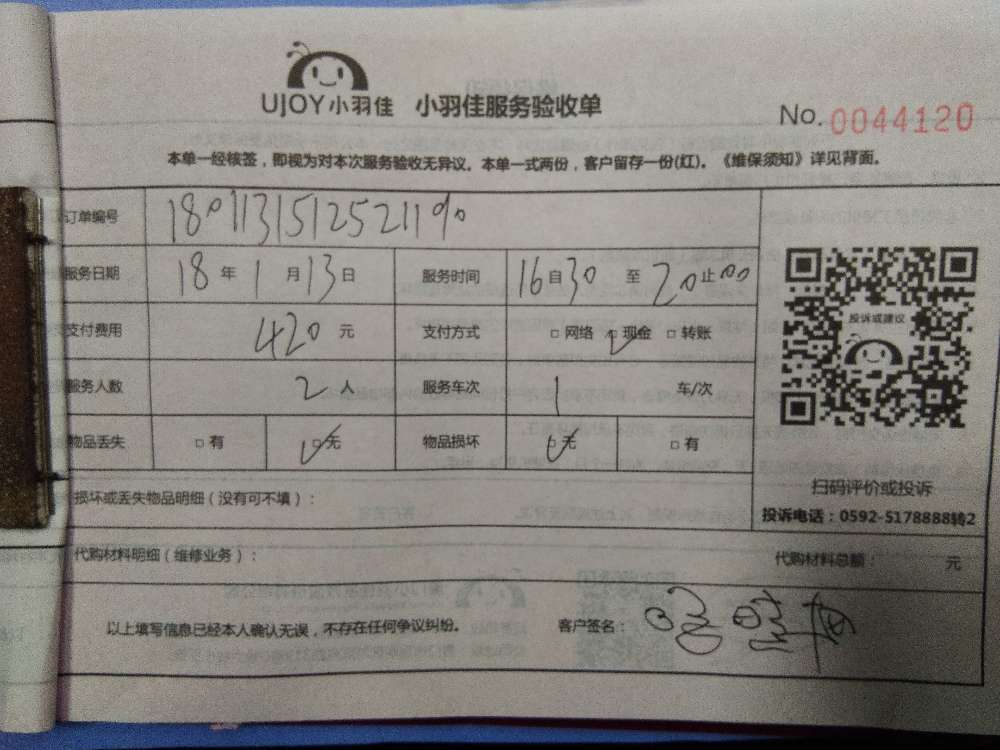 UJOY小羽佳 小羽佳服务验收单
No. 0044120
本单一经核签，即视为对本次服务验收无异议。本单一式两份，客户留存一份(红)。《维保须知》详见背面。
订单编号 180113151252119
服务日期 18年1月13日 服务时间 16自30至20止00
支付费用 420元 支付方式 □网络 □现金 □转账
服务人数 2人 服务车次 1 车/次
物品丢失 □有 □无 物品损坏 □无 □有
投诉或建议
扫码评价或投诉
损坏或丢失物品明细（没有可不填）：
投诉电话：0592-5178888转2
代购材料明细（维修业务）： 代购材料总额： 元
以上填写信息已经本人确认无误，不存在任何争议纠纷。 客户签名：